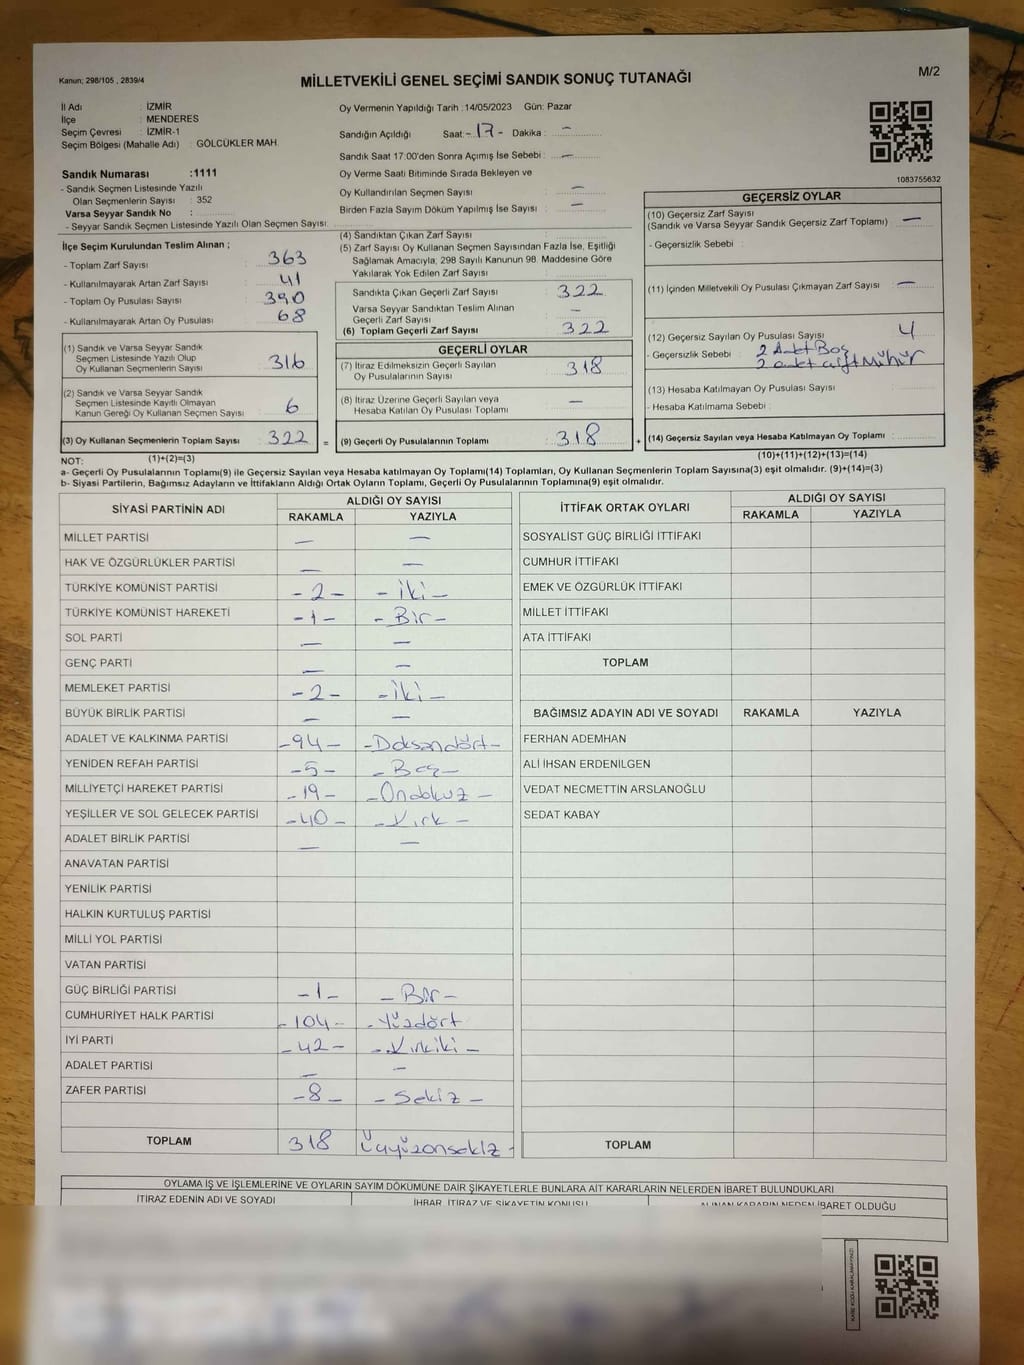 Kanun; 298/105 , 2839/4
MİLLETVEKİLİ GENEL SEÇİMİ SANDIK SONUÇ TUTANAĞI
M/2
İl Adı : İZMİR
İlçe : MENDERES
Seçim Çevresi : İZMİR-1
Seçim Bölgesi (Mahalle Adı) : GÖLCÜKLER MAH.
Oy Vermenin Yapıldığı Tarih :14/05/2023 Gün: Pazar
Sandığın Açıldığı Saat:- 17 - Dakika : —
Sandık Saat 17:00'den Sonra Açımış İse Sebebi : —
Oy Verme Saati Bitiminde Sırada Bekleyen ve
Oy Kullandırılan Seçmen Sayısı : —
Birden Fazla Sayım Döküm Yapılmış İse Sayısı : —
1083755632
Sandık Numarası :1111
- Sandık Seçmen Listesinde Yazılı
Olan Seçmenlerin Sayısı : 352
Varsa Seyyar Sandık No :
- Seyyar Sandık Seçmen Listesinde Yazılı Olan Seçmen Sayısı:
İlçe Seçim Kurulundan Teslim Alınan ;
- Toplam Zarf Sayısı : 363
- Kullanılmayarak Artan Zarf Sayısı : 41
- Toplam Oy Pusulası Sayısı : 390
- Kullanılmayarak Artan Oy Pusulası : 68
(1) Sandık ve Varsa Seyyar Sandık
Seçmen Listesinde Yazılı Olup
Oy Kullanan Seçmenlerin Sayısı : 316
(2) Sandık ve Varsa Seyyar Sandık
Seçmen Listesinde Kayıtlı Olmayan
Kanun Gereği Oy Kullanan Seçmen Sayısı : 6
(3) Oy Kullanan Seçmenlerin Toplam Sayısı : 322 =
(4) Sandıktan Çıkan Zarf Sayısı :
(5) Zarf Sayısı Oy Kullanan Seçmen Sayısından Fazla İse, Eşitliği
Sağlamak Amacıyla, 298 Sayılı Kanunun 98. Maddesine Göre
Yakılarak Yok Edilen Zarf Sayısı :
Sandıkta Çıkan Geçerli Zarf Sayısı : 322
Varsa Seyyar Sandıktan Teslim Alınan
Geçerli Zarf Sayısı : —
(6) Toplam Geçerli Zarf Sayısı : 322
GEÇERLİ OYLAR
(7) İtiraz Edilmeksizin Geçerli Sayılan
Oy Pusulalarının Sayısı : 318
(8) İtiraz Üzerine Geçerli Sayılan veya
Hesaba Katılan Oy Pusulası Toplamı : —
(9) Geçerli Oy Pusulalarının Toplamı : 318 +
GEÇERSİZ OYLAR
(10) Geçersiz Zarf Sayısı : —
(Sandık ve Varsa Seyyar Sandık Geçersiz Zarf Toplamı)
- Geçersizlik Sebebi :
(11) İçinden Milletvekili Oy Pusulası Çıkmayan Zarf Sayısı : —
(12) Geçersiz Sayılan Oy Pusulası Sayısı : 4
- Geçersizlik Sebebi : 2 Adet Boş
2 adet çift Mühür
(13) Hesaba Katılmayan Oy Pusulası Sayısı :
- Hesaba Katılmama Sebebi :
(14) Geçersiz Sayılan veya Hesaba Katılmayan Oy Toplamı :
NOT: (1)+(2)=(3)
(10)+(11)+(12)+(13)=(14)
a- Geçerli Oy Pusulalarının Toplamı(9) ile Geçersiz Sayılan veya Hesaba katılmayan Oy Toplamı(14) Toplamları, Oy Kullanan Seçmenlerin Toplam Sayısına(3) eşit olmalıdır. (9)+(14)=(3)
b- Siyasi Partilerin, Bağımsız Adayların ve İttifakların Aldığı Ortak Oyların Toplamı, Geçerli Oy Pusulalarının Toplamına(9) eşit olmalıdır.
SİYASİ PARTİNİN ADI ALDIĞI OY SAYISI
RAKAMLA YAZIYLA
MİLLET PARTİSİ — —
HAK VE ÖZGÜRLÜKLER PARTİSİ — —
TÜRKİYE KOMÜNİST PARTİSİ - 2 - - iki -
TÜRKİYE KOMÜNİST HAREKETİ - 1 - - Bir -
SOL PARTİ — —
GENÇ PARTİ — —
MEMLEKET PARTİSİ - 2 - - iki -
BÜYÜK BİRLİK PARTİSİ — —
ADALET VE KALKINMA PARTİSİ - 94 - - Doksandört -
YENİDEN REFAH PARTİSİ - 5 - - Beş -
MİLLİYETÇİ HAREKET PARTİSİ - 19 - - Ondokuz -
YEŞİLLER VE SOL GELECEK PARTİSİ - 40 - - Kırk -
ADALET BİRLİK PARTİSİ — —
ANAVATAN PARTİSİ
YENİLİK PARTİSİ
HALKIN KURTULUŞ PARTİSİ
MİLLİ YOL PARTİSİ
VATAN PARTİSİ
GÜÇ BİRLİĞİ PARTİSİ - 1 - - Bir -
CUMHURİYET HALK PARTİSİ - 104 - - Yüzdört
İYİ PARTİ - 42 - - Kırkiki -
ADALET PARTİSİ — —
ZAFER PARTİSİ - 8 - - Sekiz -
TOPLAM 318 Üçyüzonsekiz -
İTTİFAK ORTAK OYLARI ALDIĞI OY SAYISI
RAKAMLA YAZIYLA
SOSYALİST GÜÇ BİRLİĞİ İTTİFAKI
CUMHUR İTTİFAKI
EMEK VE ÖZGÜRLÜK İTTİFAKI
MİLLET İTTİFAKI
ATA İTTİFAKI
TOPLAM
BAĞIMSIZ ADAYIN ADI VE SOYADI RAKAMLA YAZIYLA
FERHAN ADEMHAN
ALİ İHSAN ERDENİLGEN
VEDAT NECMETTİN ARSLANOĞLU
SEDAT KABAY
TOPLAM
OYLAMA İŞ VE İŞLEMLERİNE VE OYLARIN SAYIM DÖKÜMÜNE DAİR ŞİKAYETLERLE BUNLARA AİT KARARLARIN NELERDEN İBARET BULUNDUKLARI
İTİRAZ EDENİN ADI VE SOYADI İHBAR, İTİRAZ VE ŞİKAYETİN KONUSU ALINAN KARARIN NEDEN İBARET OLDUĞU